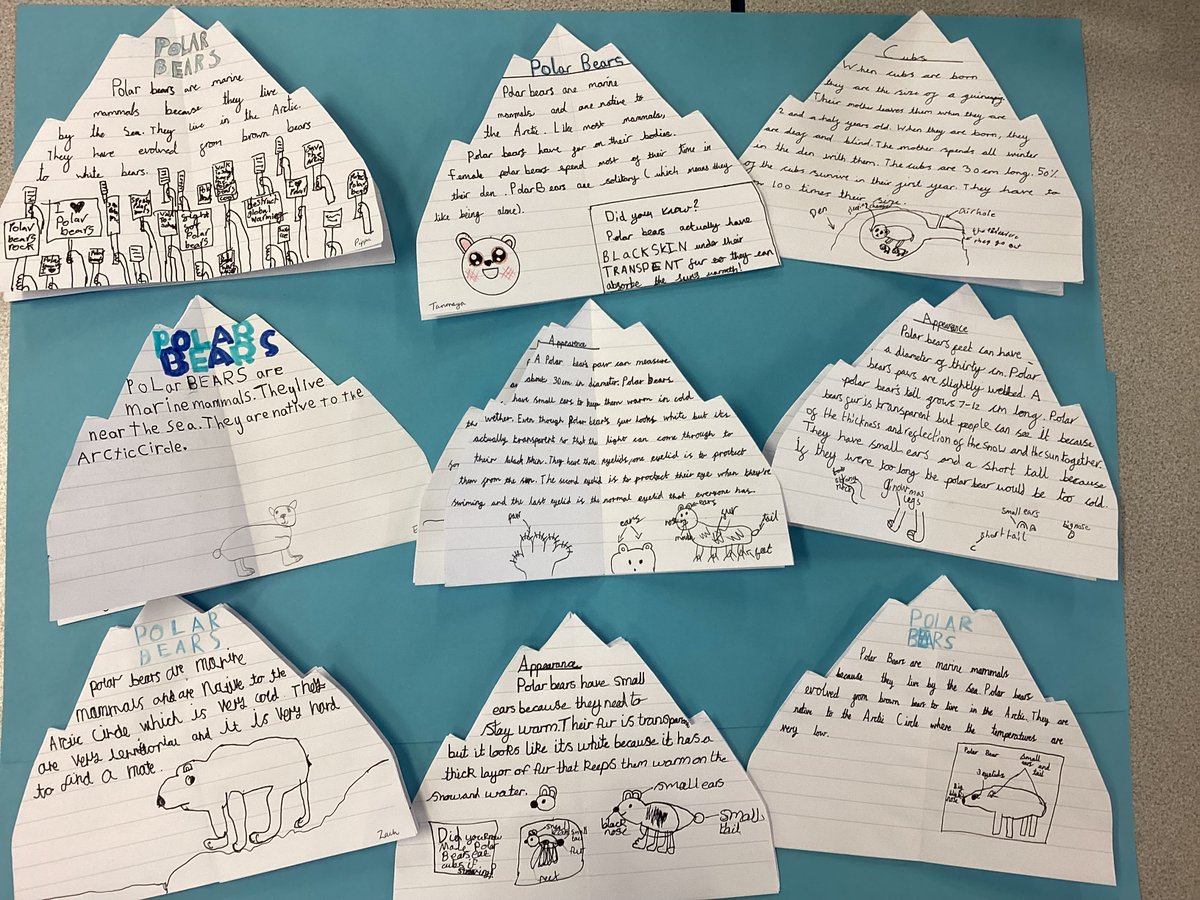 POLAR
BEARS
Polar bears are marine
mammals because they live
by the Sea. They live in the Arctic.
They have evolved from brown bears
to white bears.
Save
the
Arctic
I ♥
Polar
bears
Polar
bears
rock
destruct
global
warming
Pippa
Polar Bears
Polar bears are marine
mammals and are native to
the Arctic. Like most mammals,
Polar bears have fur on their bodies.
Female polar bears spend most of their time in
their den. Polar Bears are solitary ( which means they
like being alone).
Did you know?
Polar bears actually have
BLACK SKIN under their
TRANSPENT fur so they can
absorbe the suns warmth!
Tanmaya
Cubs
When cubs are born
they are the size of a guineapig.
Their mother leaves them when they are
2 and a half years old. When they are born, they
are deaf and blind. The mother spends all winter
in the den with them. The cubs are 30cm long. 50%
of the cubs survive in their first year. They have to
100 times their size.
Den
airhole
they go out
POLAR
BEARS
POLar BEARS are
marine mammals. They live
near the sea. They are native to the
ArCticCircle.
Appearance
A Polar bears paw can measure
about 30cm in diameter. Polar Bears
have small ears to keep them warm in cold
wether. Even though Polar bears fur looks white but its
actually transparent so that the light can come through to
their black skin. They have three eyelids, one eyelid is to protect
them from the sun. The second eyelid is to protect their eye when they're
swimming and the last eyelid is the normal eyelid that everyone has.
paw
ears
ears
fur
tail
feet
Appearance
Polar bears feet can have
a diameter of thirty cm. Polar
bears paws are slightly webbed. A
polar bears tail grows 7-12 cm long. Polar
bears fur is transparent but people can see it because
of the thickness and reflection of the snow and the sun together.
They have small ears and a short tail because
if they were too long the polar bear would be too cold.
ginourmas
legs
small ears
short tail
big nose
POLAR
BEARS
polar bears are marine
mammals and are Native to the
Arctic Circle which is very cold They
are very territorial and it is very hard
to find a mate.
Zach
Appearance
Polar bears have small
ears because they need to
stay warm. Their fur is transparent
but it looks like its white because it has a
thick layor of fur that keeps them warm on the
snow and water.
Did you know
Male Polar
Bears eat
cubs if
fur
feet
small ears
black
nose
small
tail
POLAR
BEARS
Polar Bears are marine mammals
because they live by the sea. Polar bears
evolved from brown bears to live in the Arctic. They are
native to the Arctic Circle where the temperatures are
very low.
Polar Bear
small
ears and
tail
3 eyelids